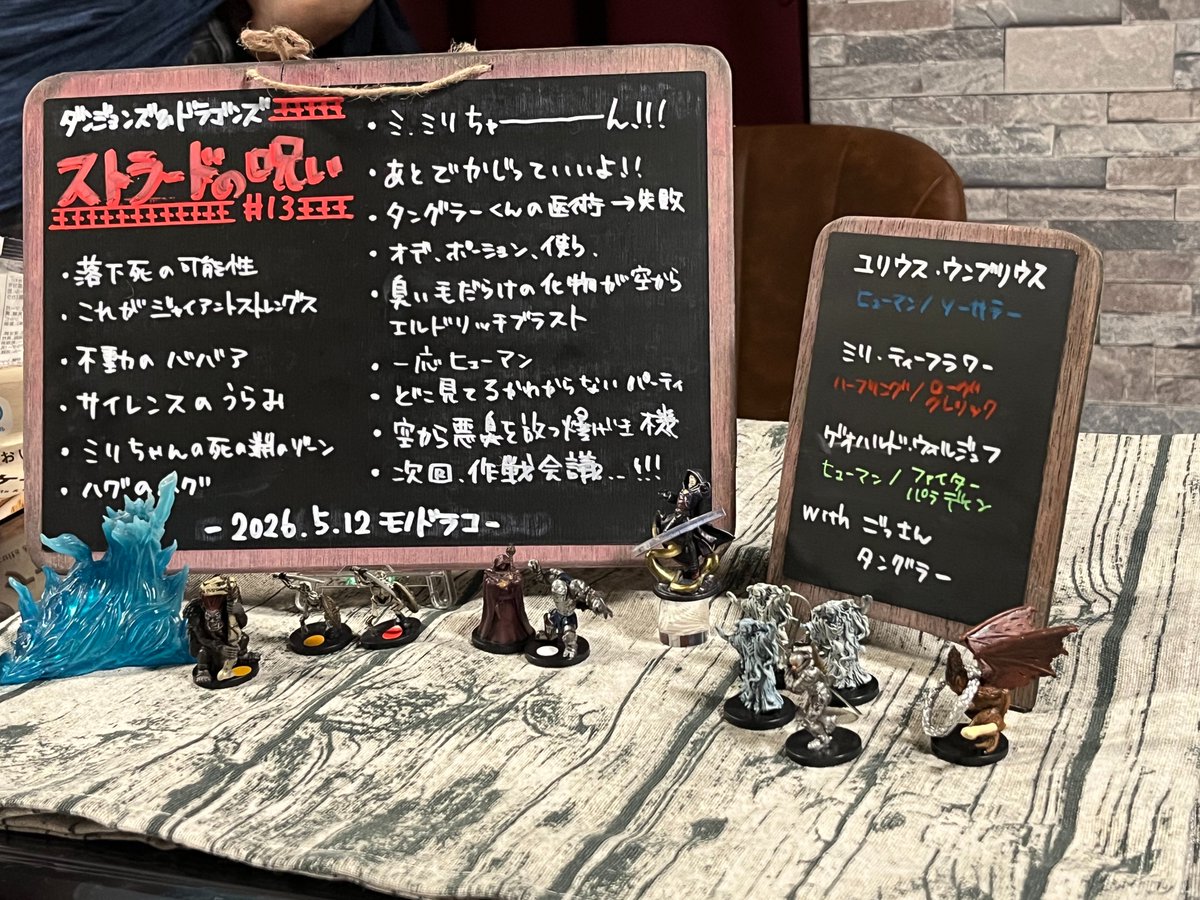 ダンジョンズ&ドラゴンズ
ストラードの呪い
#13
・落下死の可能性
・これがジャイアントストレングス
・不動のババア
・サイレンスのうらみ
・ミリちゃんの死の淵のゾーン
・ハグの グ
・ミ、ミリちゃーーーーん!!!
・あとでかじっていいよ!!
・タングラーくんの医術→失敗
・オデ、ポーション、使う、
・臭い毛だらけの化物が空から
エルドリッチブラスト
・一応ヒューマン
・どこ見てるかわからないパーティ
・空から悪臭を放つ爆げき機
・次回、作戦会議...!!!
-2026.5.12 モノドラコ-
ユリウス・ウンブリウス
ヒューマン/ソーサラー
ミリ・ティーフラワー
ハーフリング/ローグ
クレリック
ゲオハルド・ウォルジェフ
ヒューマン/ファイター
パラディン
with ごっさん
タングラー